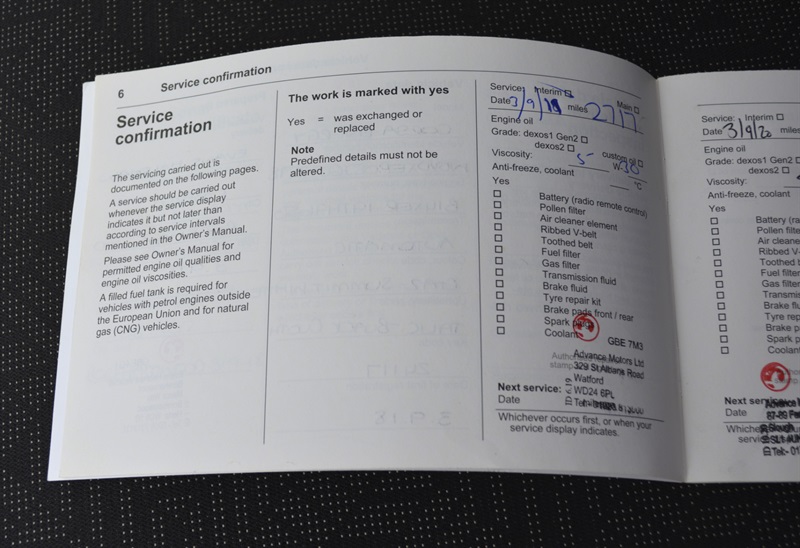 6
Service confirmation
Service
confirmation
The servicing carried out is
documented on the following pages.
A service should be carried out
whenever the service display
indicates it but not later than
according to service intervals
mentioned in the Owner's Manual.
Please see Owner's Manual for
permitted engine oil qualities and
engine oil viscosities.
A filled fuel tank is required for
vehicles with petrol engines outside
the European Union and for natural
gas (CNG) vehicles.
The work is marked with yes
Yes = was exchanged or
replaced
Note
Predefined details must not be
altered.
Service: Interim Main
Date 3/9/18 miles 2717
Engine oil
Grade: dexos1 Gen2
dexos2 custom oil
Viscosity: 5 W-30
Anti-freeze, coolant °C
Yes
Battery (radio remote control)
Pollen filter
Air cleaner element
Ribbed V-belt
Toothed belt
Fuel filter
Gas filter
Transmission fluid
Brake fluid
Tyre repair kit
Brake pads front / rear
Spark
Coolant
GBE 7M3
Advance Motors Ltd
329 St Albans Road
Watford
WD24 6PL
Next service:
Date
Whichever occurs first, or when your
service display indicates.
Service: Interim
Date 3/9/20 miles
Engine oil
Grade: dexos1 Gen2
dexos2
Viscosity:
Anti-freeze, coolant
Yes
Battery (ra
Pollen filte
Air cleane
Ribbed V-
Toothed b
Fuel filter
Gas filter
Transmis
Brake flu
Tyre rep
Brake p
Spark p
Coolan
Next
Date
Slough